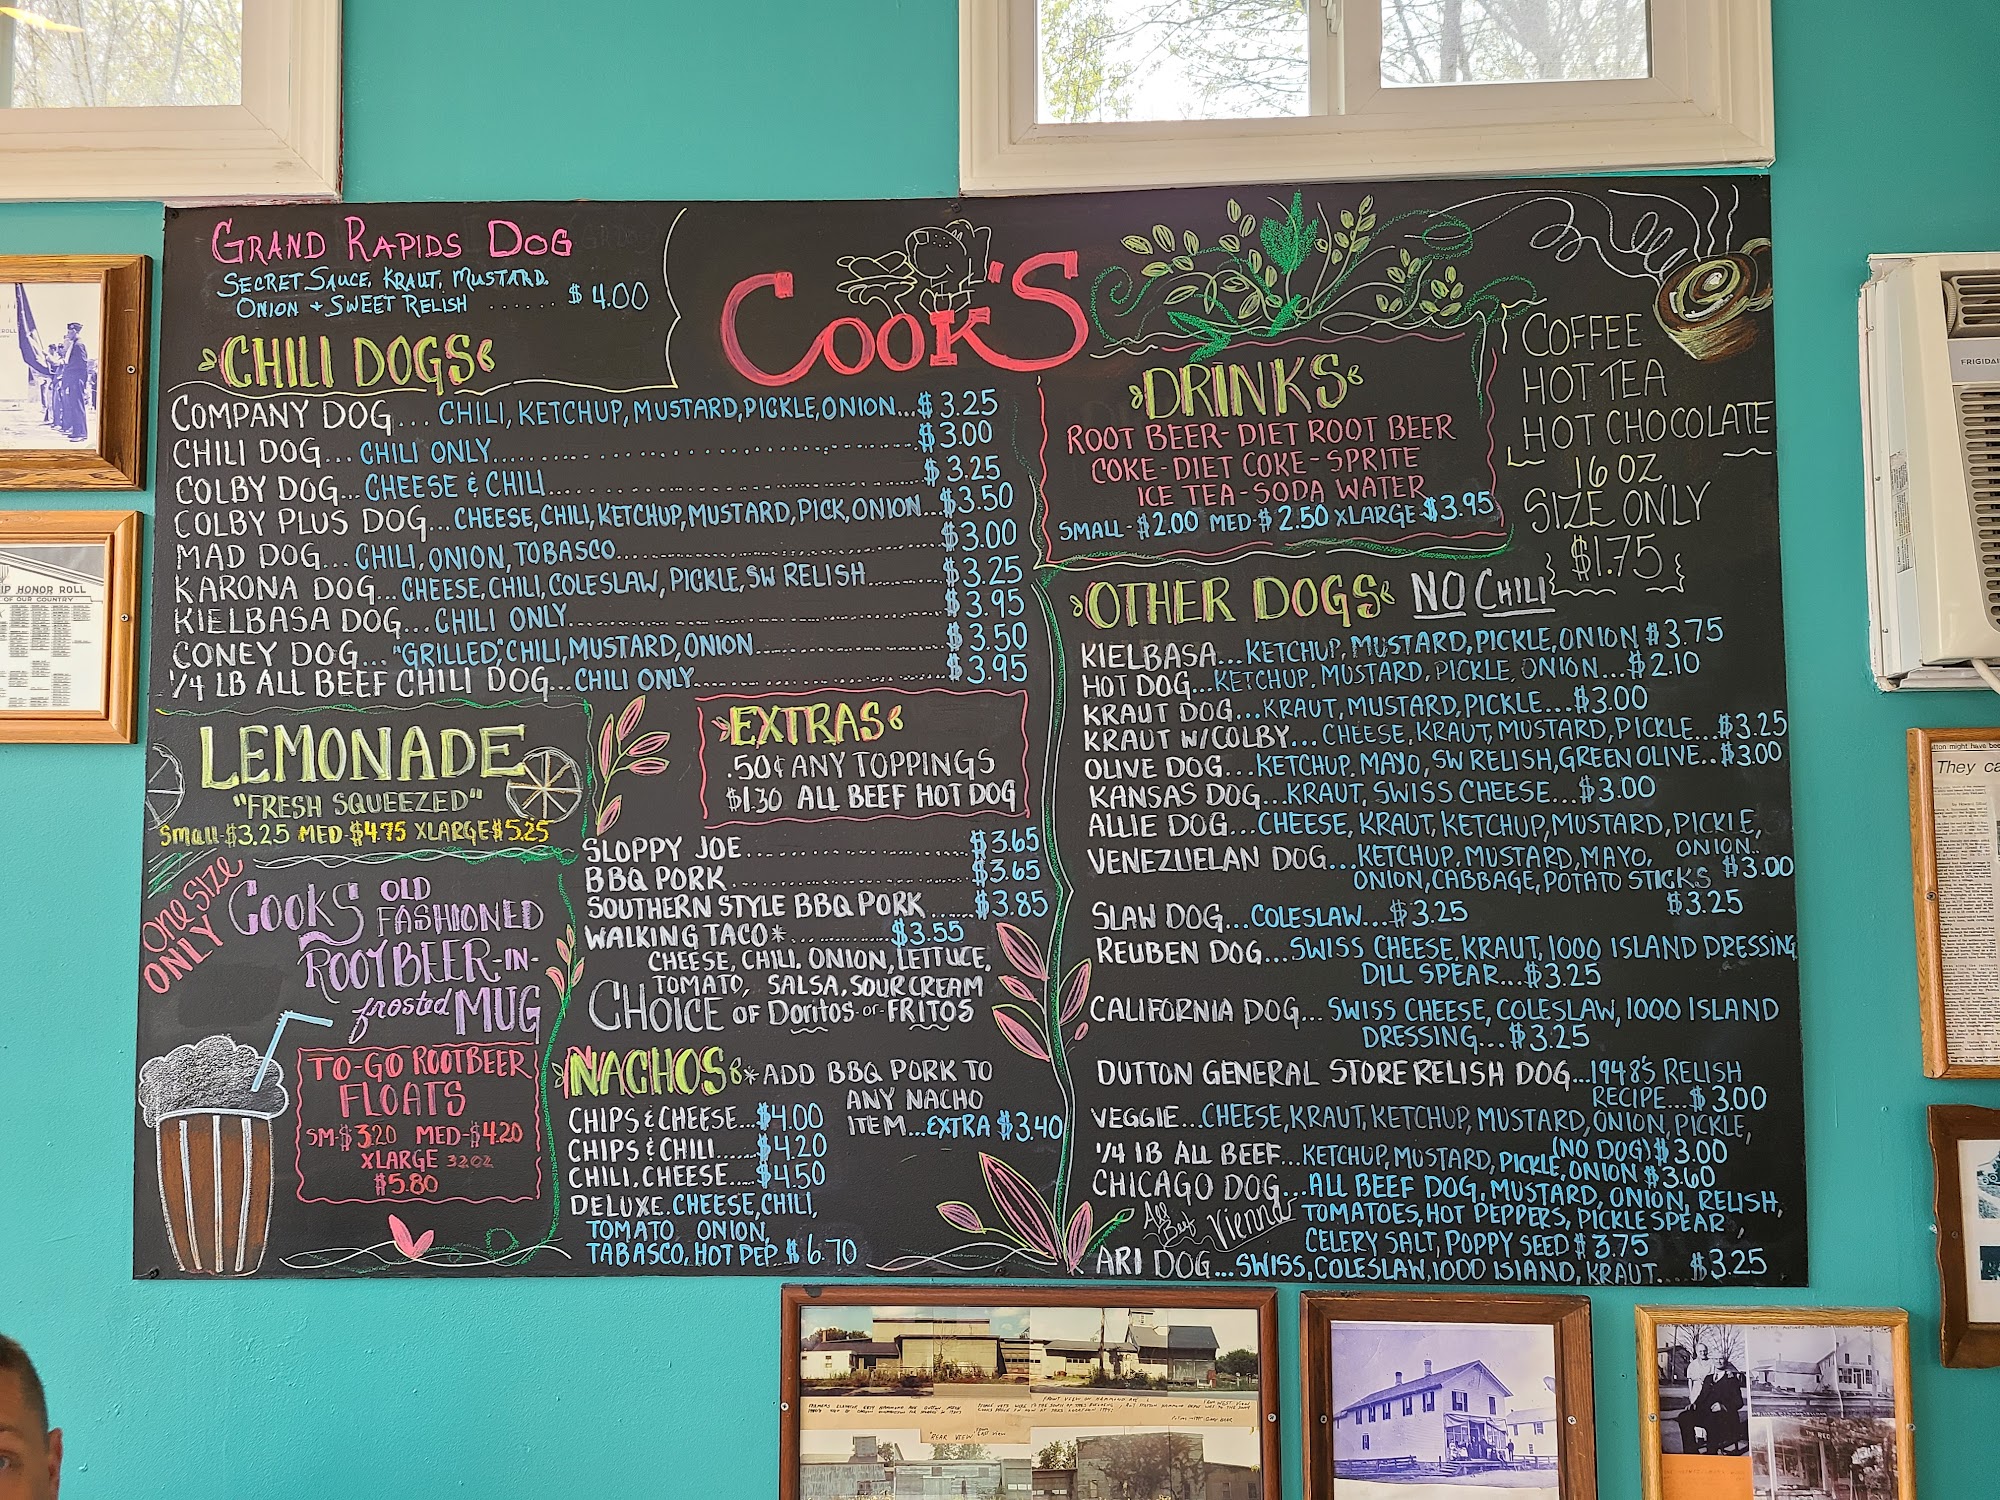 GRAND RAPIDS DOG
SECRET SAUCE, KRAUT, MUSTARD,
ONION + SWEET RELISH ...... $4.00
COOK'S
CHILI DOGS
COMPANY DOG... CHILI, KETCHUP, MUSTARD, PICKLE, ONION...$3.25
CHILI DOG... CHILI ONLY...$3.00
COLBY DOG... CHEESE & CHILI...$3.25
COLBY PLUS DOG... CHEESE, CHILI, KETCHUP, MUSTARD, PICK, ONION...$3.50
MAD DOG... CHILI, ONION, TOBASCO...$3.00
KARONA DOG... CHEESE, CHILI, COLESLAW, PICKLE, SW RELISH...$3.25
KIELBASA DOG... CHILI ONLY...$3.95
CONEY DOG... "GRILLED", CHILI, MUSTARD, ONION...$3.50
1/4 LB ALL BEEF CHILI DOG... CHILI ONLY...$3.95
LEMONADE
"FRESH SQUEEZED"
Small-$3.25 MED $4.75 XLARGE $5.25
ONE SIZE
ONLY
COOKS OLD
FASHIONED
ROOTBEER-IN-
frosted MUG
TO-GO ROOTBEER
FLOATS
SM-$3.20 MED-$4.20
XLARGE 32OZ
$5.80
EXTRAS
.50¢ ANY TOPPINGS
$1.30 ALL BEEF HOT DOG
SLOPPY JOE...$3.65
BBQ PORK...$3.65
SOUTHERN STYLE BBQ PORK...$3.85
WALKING TACO*...$3.55
CHEESE, CHILI, ONION, LETTUCE,
TOMATO, SALSA, SOUR CREAM
CHOICE OF Doritos or FRITOS
NACHOS
*ADD BBQ PORK TO
ANY NACHO
ITEM...EXTRA $3.40
CHIPS & CHEESE...$4.00
CHIPS & CHILI...$4.20
CHILI, CHEESE...$4.50
DELUXE. CHEESE, CHILI,
TOMATO, ONION,
TABASCO, HOT PEP. $6.70
DRINKS
ROOT BEER-DIET ROOT BEER
COKE-DIET COKE-SPRITE
ICE TEA-SODA WATER
SMALL-$2.00 MED-$2.50 XLARGE $3.95
COFFEE
HOT TEA
HOT CHOCOLATE
16 OZ
SIZE ONLY
$1.75
OTHER DOGS NO CHILI
KIELBASA...KETCHUP, MUSTARD, PICKLE, ONION $3.75
HOT DOG...KETCHUP, MUSTARD, PICKLE, ONION...$2.10
KRAUT DOG...KRAUT, MUSTARD, PICKLE...$3.00
KRAUT W/COLBY...CHEESE, KRAUT, MUSTARD, PICKLE...$3.25
OLIVE DOG...KETCHUP, MAYO, SW RELISH, GREEN OLIVE..$3.00
KANSAS DOG...KRAUT, SWISS CHEESE...$3.00
ALLIE DOG...CHEESE, KRAUT, KETCHUP, MUSTARD, PICKLE,
ONION..
$3.00
VENEZUELAN DOG...KETCHUP, MUSTARD, MAYO,
ONION, CABBAGE, POTATO STICKS
$3.25
SLAW DOG...COLESLAW...$3.25
REUBEN DOG...SWISS CHEESE, KRAUT, 1000 ISLAND DRESSING
DILL SPEAR...$3.25
CALIFORNIA DOG...SWISS CHEESE, COLESLAW, 1000 ISLAND
DRESSING...$3.25
DUTTON GENERAL STORE RELISH DOG...1948'S RELISH
RECIPE...$3.00
VEGGIE...CHEESE, KRAUT, KETCHUP, MUSTARD, ONION, PICKLE,
(NO DOG) $3.00
1/4 lB ALL BEEF...KETCHUP, MUSTARD, PICKLE, ONION $3.60
CHICAGO DOG...ALL BEEF DOG, MUSTARD, ONION, RELISH,
All Beef Vienna
TOMATOES, HOT PEPPERS, PICKLE SPEAR,
CELERY SALT, POPPY SEED $3.75
ARI DOG...SWISS, COLESLAW, 1000 ISLAND, KRAUT....$3.25
HONOR ROLL
OF OUR COUNTRY
FRIGIDAI
They ca
"REAR VIEW"